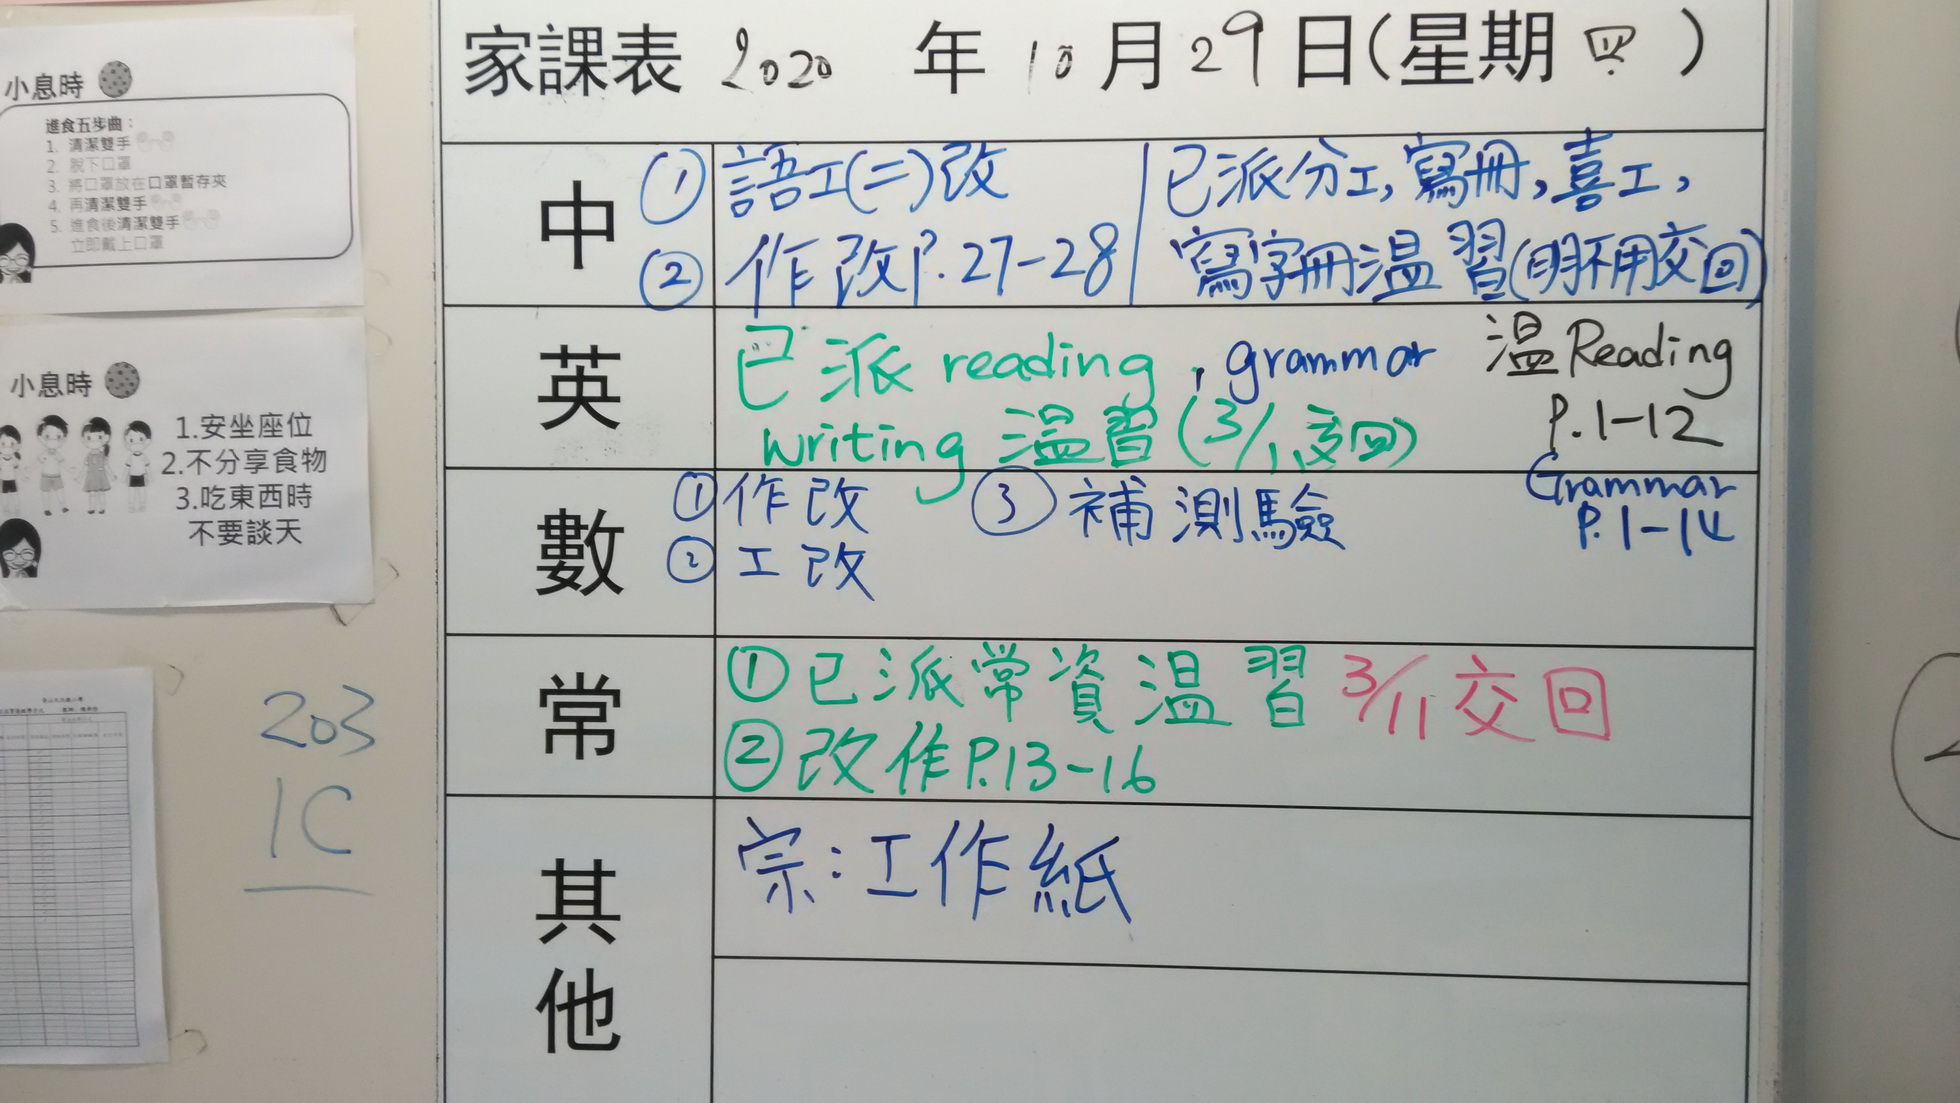 小息時
進食五步曲：
1. 清潔雙手
2. 脫下口罩
3. 將口罩放在口罩暫存夾
4. 再清潔雙手
5. 進食後清潔雙手
立即戴上口罩
小息時
1.安坐座位
2.不分享食物
3.吃東西時
不要談天
203
1C
家課表 2020 年 10 月 29 日(星期 四 )
中
① 語工(二)改
② 作改P.27-28
已派分工,寫冊,喜工,
寫字冊溫習(明不用交回)
英
已派 reading , grammar
writing 溫習(3/11交回)
溫Reading
P.1-12
Grammar
P.1-14
數
① 作改
② 工改
③ 補測驗
常
①已派常資溫習 3/11交回
②改作P.13-16
其他
宗:工作紙